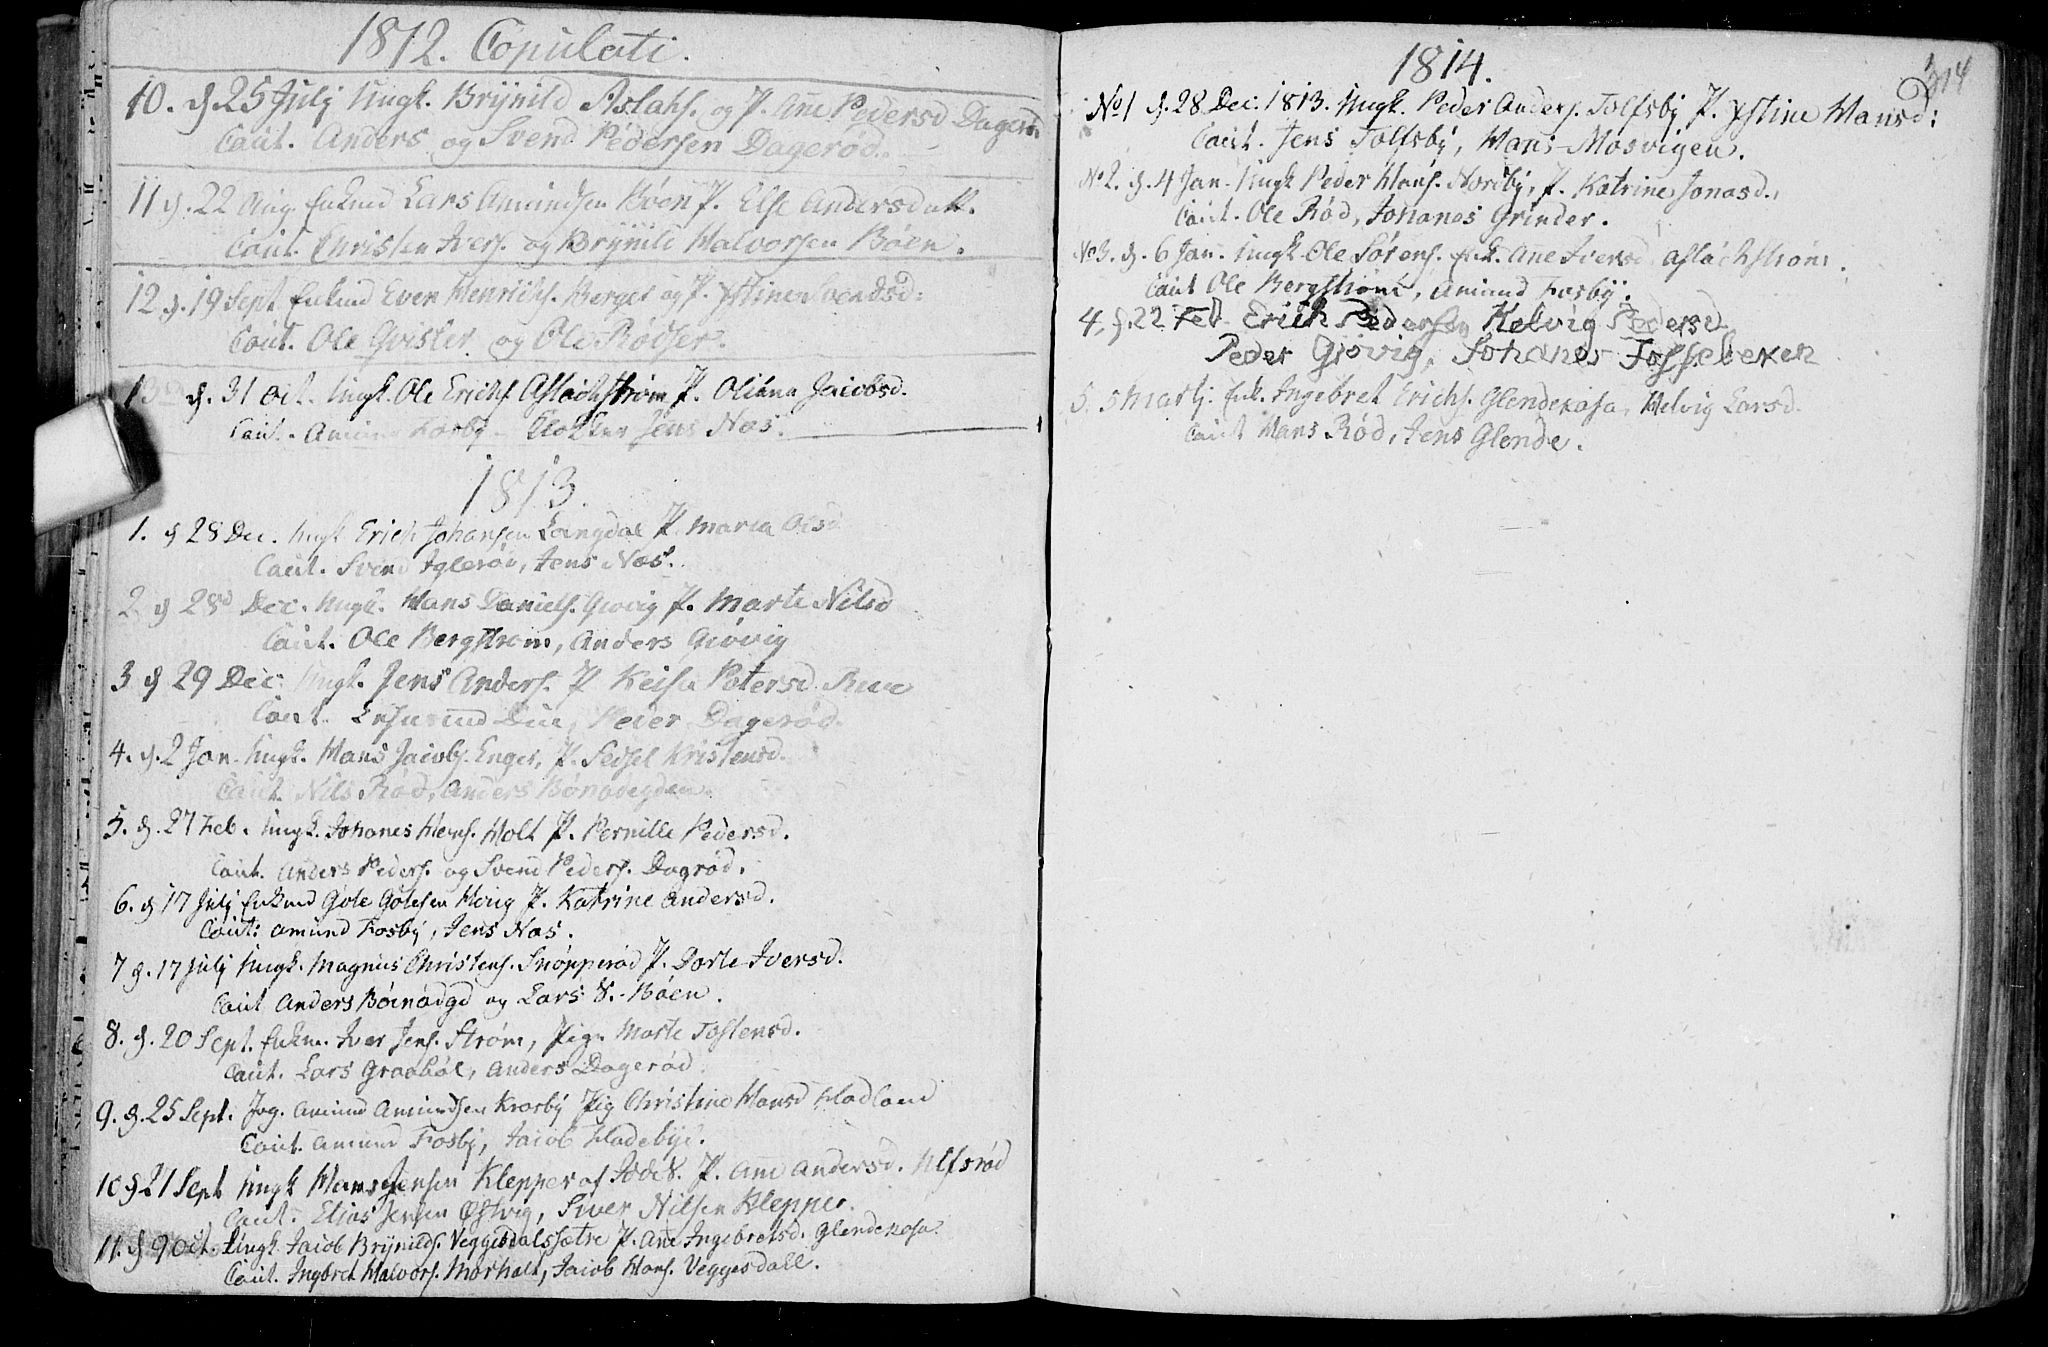 1812. Copulati.
10. d. 25 Julj Ungk. Brÿnild Aslaks. og P. Ane Pedersd Dagerød
Caut. Anders og Svend Pedersen Dagerød.
11 d. 22 Aug. Enkmd Lars Amundsen Bøen P. Else Andersdatt.
Caut. Christen Ivers. og Brÿnild Halvorsen Bøen.
12 d. 19 Sept Enkmd Even Henrichs. Berger og P. Istine Svendsd:
Caut. Ole Gvisler og Ole Rødser.
13 d. 31 Oct. Ungk. Ole Erichs. Aslachstrøm P. Oliana Jacobsd.
Caut. Amund Fosby Klokker Jens Næs.
1813.
1. d 28 Dec. Ungk Erich Johansen Langdal P. Maria Olsd
Caut. Svend Iglerød, Jens Næs.
2 d 28d Dec. Ungk. Hans Daniels. Giøvig P. Marte Nilsd
Caut. Ole Bergstrøm, Anders Giøvig
3 d 29 Dec. Ungk. Jens Anders. P Keisa Petersd.
Caut. Due, Peder Dagerød.
4. d. 2 Jan. Ungk. Hans Jacobs. Enger, P. Sidsel Kristensd.
Caut. Nils Rød, Anders Bønødegden.
5. d. 27 Feb. Ungk. Johanes Hans. Holt P. Pernille Pedersd.
Caut. Anders Peders. og Svend Peders. Dagrød.
6. d 17 Julj Enkmd Gole Golesen Hvig P. Katrine Andersd.
Caut: Amund Fosbÿ, Jens Næs.
7 d. 17 Julj Ungk. Magnus Christens. Snøpperød P. Dorte Iversd.
Caut Anders Bøenødgd og Lars S. Bøen.
8. d. 20 Sept. Enkm. Iver Jens. Strøm, Pige Marte Tostensd.
Caut. Lars Graabøl, Anders Dagerød.
9. d. 25 Sept. Jog. Amund Amundsen Krosbÿ Pig Christine Hansd Hadland
Caut. Amund Fosbÿ, Jacob Hadebÿe.
10 d 21 Sept Ungk Hans Jensen Klepper af Idde S. P. Ane Andersd. Ulfsrød
Caut. Elias Jensen Østvig, Siver Nilsen Klepper.
11. d 9 Oct. Ungk. Jacob Brÿnilds. Veggesdalssætre P. Ane Ingebretsd. Glendekasa.
Caut. Ingbret Halvors. Mørhalt, Jacob Hans. Veggesdall.
314
1814.
No 1 d. 28 Dec. 1813. Ungk. Peder Anders. Tolfsbÿ P. Istine Hansd:
Caut. Jens Tolfsbÿ, Hans Mosvigen.
No 2. d. 4 Jan. Ungk Peder Hans. Nordbÿ, P. Katrine Jonasd.,
Caut. Ole Rød, Johanes Grinder.
No 3. d. 6 Jan. Ungk Ole Sørens. Enk. Ane Iversd. Aslachstrøm.
Caut Ole Bergstrøm, Amund Fosbÿ.
4. d. 22 Feb Erich Pedersen Helvig Pedersd
Peder Giøvig, Johanes Fossebeken
5. 5 Martj. Enk. Ingebret Erichs. Glendekasa, Helvig Larsd.
Caut Hans Rød, Jens Glende.